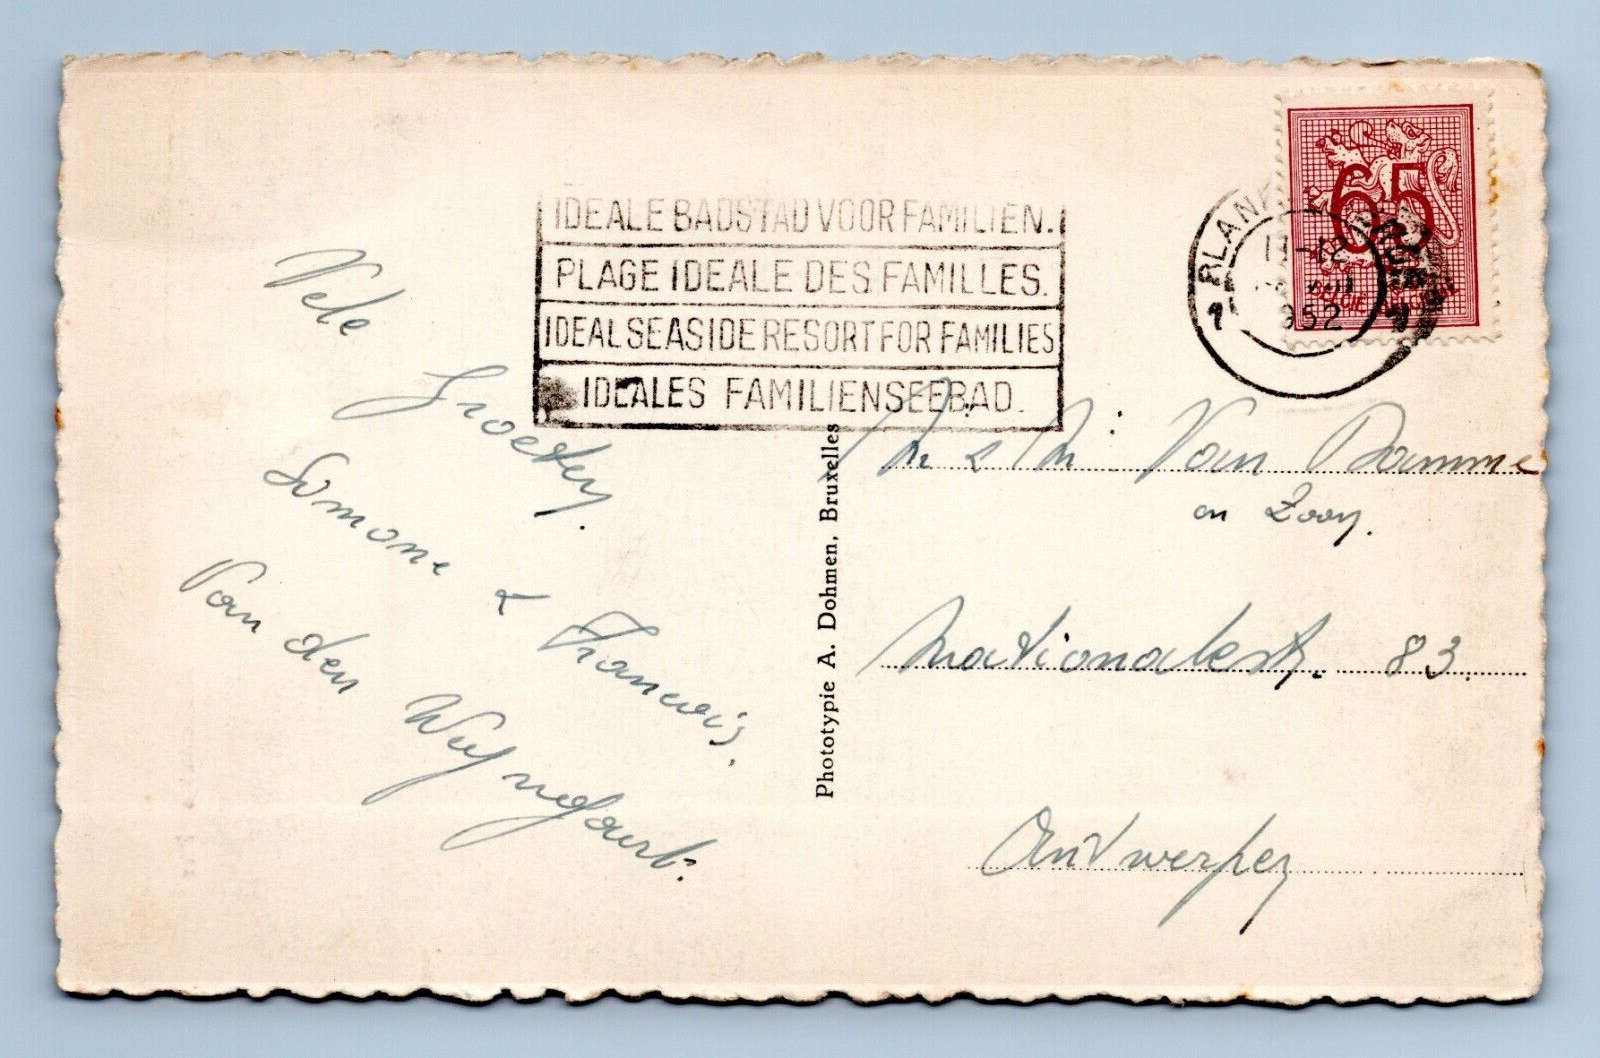 IDEALE BADSTAD VOOR FAMILIEN.
PLAGE IDEALE DES FAMILLES.
IDEAL SEASIDE RESORT FOR FAMILIES
IDEALES FAMILIENSEEBAD.
65
BELGIE
11-12
952
Vele
Groeten.
Simone & Francois.
Van den Wyngaert.
Phototypie A. Dohmen, Bruxelles
Mr & Mr Van Damme
en Zoon.
Nationalest. 83.
Antwerpen